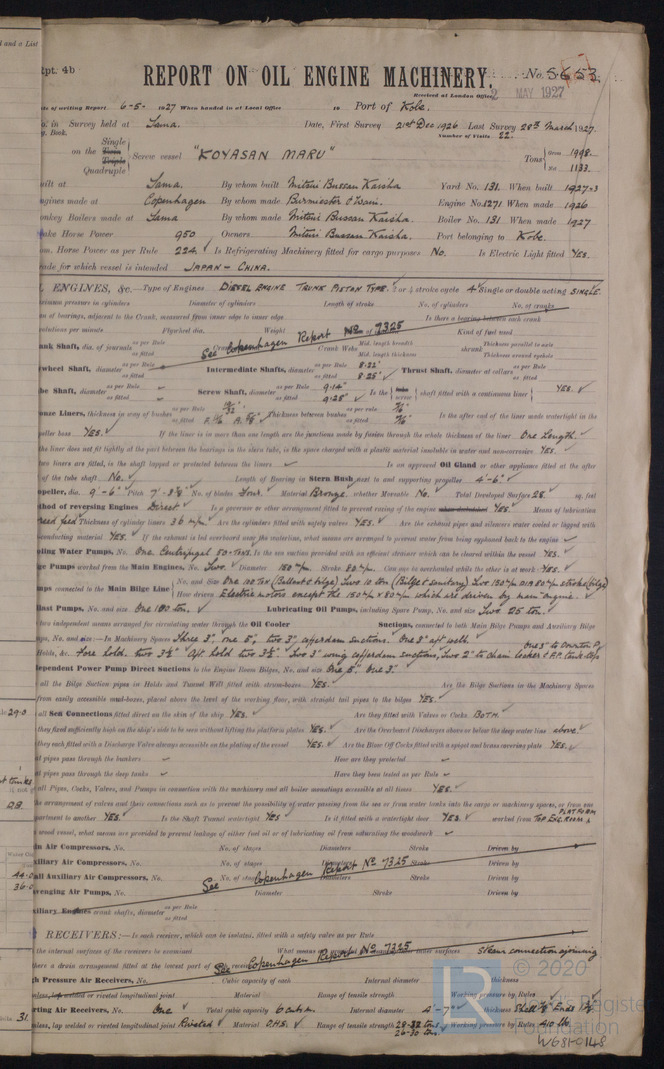 d and a List
Rpt. 4b
REPORT ON OIL ENGINE MACHINERY.
No. 5653
Received at London Office 2 MAY 1927
of writing Report. 6-5-1927 When handed in at Local Office 19 Port of Kobe.
in Survey held at Sama. Date, First Survey 21st Dec 1926 Last Survey 28th March 1927.
Book. Number of Visits 22
on the Single Twin Triple Quadruple Screw vessel "KOYASAN MARU" Tons Gross 1998. Net 1133.
built at Sama. By whom built Mitsui Bussan Kaisha Yard No. 131. When built 1927
Engines made at Copenhagen By whom made Burmeister & Wain. Engine No. 1271 When made 1926
Donkey Boilers made at Sama By whom made Mitsui Bussan Kaisha. Boiler No. 131. When made 1927
Brake Horse Power 950 Owners Mitsui Bussan Kaisha. Port belonging to Kobe.
Nom. Horse Power as per Rule 224. Is Refrigerating Machinery fitted for cargo purposes No. Is Electric Light fitted YES.
Trade for which vessel is intended JAPAN - CHINA.
ENGINES, &c.—Type of Engines DIESEL ENGINE TRUNK PISTON TYPE. 2 or 4 stroke cycle 4 Single or double acting SINGLE
pressure in cylinders Diameter of cylinders Length of stroke No. of cylinders No. of cranks
of bearings, adjacent to the Crank, measured from inner edge to inner edge Is there a bearing between each crank
Revolutions per minute Flywheel dia. Weight Kind of fuel used
See Copenhagen Report No. 7325
Crank Shaft, dia. of journals as per Rule as fitted Crank Webs Mid. length breadth Mid. length thickness shrunk Thickness parallel to axis Thickness around eyehole
wheel Shaft, diameter as per Rule as fitted Intermediate Shafts, diameter as per Rule 8.22" as fitted 8.25" Thrust Shaft, diameter at collars as per Rule as fitted
Tube Shaft, diameter as per Rule as fitted Screw Shaft, diameter as per Rule 9.14" as fitted 9.25" Is the tube screw shaft fitted with a continuous liner YES.
Bronze Liners, thickness in way of bushes as per Rule as fitted Thickness between bushes as per rule as fitted Is the after end of the liner made watertight in the
propeller boss YES. If the liner is in more than one length are the junctions made by fusion through the whole thickness of the liner One Length.
the liner does not fit tightly at the part between the bearings in the stern tube, is the space charged with a plastic material insoluble in water and non-corrosive YES.
two liners are fitted, is the shaft lapped or protected between the liners Is an approved Oil Gland or other appliance fitted at the after
of the tube shaft No. Length of Bearing in Stern Bush next to and supporting propeller 4'-6"
Propeller, dia. 9'-6" Pitch No. of blades Four. Material Bronze. whether Moveable No. Total Developed Surface 28 sq. feet
Method of reversing Engines Direct Is a governor or other arrangement fitted to prevent racing of the engine when declutched YES. Means of lubrication
Forced feed Thickness of cylinder liners 36 m/m. Are the cylinders fitted with safety valves YES. Are the exhaust pipes and silencers water cooled or lagged with
conducting material YES. If the exhaust is led overboard near the waterline, what means are arranged to prevent water being syphoned back to the engine
Cooling Water Pumps, No. One Centrifugal 50-TONS. Is the sea suction provided with an efficient strainer which can be cleared within the vessel YES.
Bilge Pumps worked from the Main Engines, No. Two. Diameter 150 m/m. Stroke 80 m/m. Can one be overhauled while the other is at work YES.
Pumps connected to the Main Bilge Line No. and Size One 100 TON (Ballast & bilge) Two 10 ton (Bilge & Sanitary) Two 150 m/m DIA 80 m/m stroke (bilge)
How driven Electric motors except the 150 m/m x 80 m/m which are driven by main engine.
Ballast Pumps, No. and size One 100 ton. Lubricating Oil Pumps, including Spare Pump, No. and size Two 25 ton.
two independent means arranged for circulating water through the Oil Cooler Suctions, connected to both Main Bilge Pumps and Auxiliary Bilge
Pumps, No. and size:—In Machinery Spaces Three 3", one 5", two 3" cofferdam suctions. One 3" aft well.
Holds, &c. Fore hold, two 3½" Aft hold two 3½" Two 3" wing cofferdam suctions, Two 2" to chain locker & F.P. tank top.
Independent Power Pump Direct Suctions to the Engine Room Bilges, No. and size One 5". One 3".
all the Bilge Suction pipes in Holds and Tunnel Well fitted with strum-boxes YES. Are the Bilge Suctions in the Machinery Spaces
from easily accessible mud-boxes, placed above the level of the working floor, with straight tail pipes to the bilges YES.
all Sea Connections fitted direct on the skin of the ship YES. Are they fitted with Valves or Cocks BOTH.
they fixed sufficiently high on the ship's side to be seen without lifting the platform plates YES. Are the Overboard Discharges above or below the deep water line above.
they each fitted with a Discharge Valve always accessible on the plating of the vessel YES. Are the Blow Off Cocks fitted with a spigot and brass covering plate YES.
pipes pass through the bunkers How are they protected
pipes pass through the deep tanks Have they been tested as per Rule
all Pipes, Cocks, Valves, and Pumps in connection with the machinery and all boiler mountings accessible at all times YES.
the arrangement of valves and their connections such as to prevent the possibility of water passing from the sea or from water tanks into the cargo or machinery spaces, or from one
compartment to another YES. Is the Shaft Tunnel watertight YES Is it fitted with a watertight door YES. worked from TOP ENG. ROOM PLATFORM
wood vessel, what means are provided to prevent leakage of either fuel oil or of lubricating oil from saturating the woodwork
Main Air Compressors, No. No. of stages Diameters Stroke Driven by
Auxiliary Air Compressors, No. No. of stages Diameters Stroke Driven by
Small Auxiliary Air Compressors, No. No. of stages Diameters Stroke Driven by
See Copenhagen Report No. 7325
Scavenging Air Pumps, No. Diameter Stroke Driven by
Auxiliary Engines crank shafts, diameter as per Rule as fitted
RECEIVERS:—Is each receiver, which can be isolated, fitted with a safety valve as per Rule
the internal surfaces of the receivers be examined What means inner surfaces Steam connection
there a drain arrangement fitted at the lowest part of receiver
See Copenhagen Report No. 7325
High Pressure Air Receivers, No. Cubic capacity of each Internal diameter thickness
lap welded or riveted longitudinal joint Material Range of tensile strength Working pressure by Rules
Starting Air Receivers, No. One Total cubic capacity Internal diameter 4'-7" thickness
Seamless, lap welded or riveted longitudinal joint Riveted Material O.H.S. Range of tensile strength 28-32 tons 26-30 tons Working pressure by Rules 410 lb
© 2020
LR
Lloyd's Register
Foundation
W681-0148